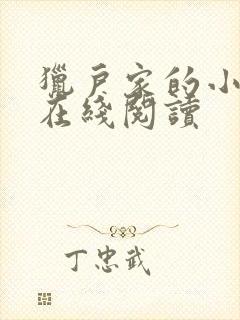 獵戶家的小
在綫閱讀
丁忠武